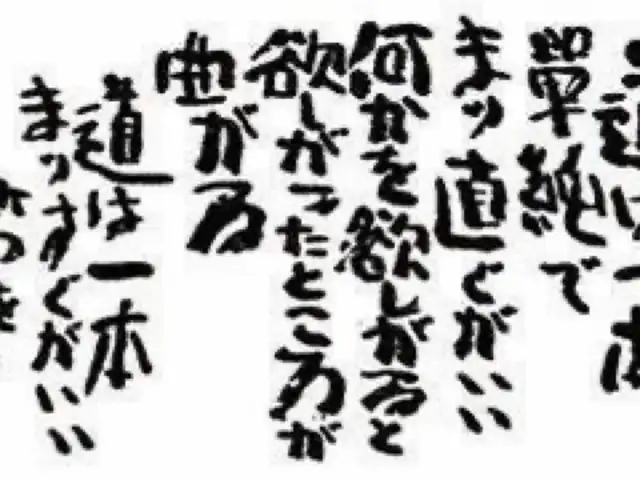 道は一
單純で
まっ直ぐがいい
何かを欲しがると
欲しがったところが
曲がる
道は一本
まっすぐがいい